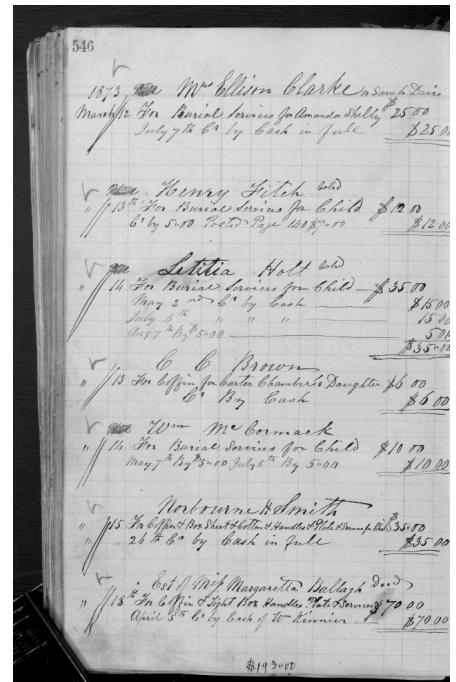 546
1873 Mrs Ellison Clarke or Sarah Davis
March 12 For Burial Services for Amanda Shelby $25 00
July 7th Cr by Cash in full $25 00
Henry Fitch Cold
" 13th For Burial Services for Child $12 00
Cr by 5=00 Posted Page 140 $7=00 $12 00
Letitia Holt Cold
" 14 For Burial Services for Child — $35 00
May 2nd Cr by Cash $15 00
July 4th " " " 15 00
Aug 7th By $5=00 5 00
$35=00
C C Brown
" 13 For Coffin for Carter Chambers Daughter $6 00
Cr By Cash $6 00
Wm McCormack
" 14 For Burial Services for Child $10 00
May 7th By $5=00 July 5th By 5=00 $10 00
Norbourne H Smith
" 15 For Coffin & Box Sheet & Cotton & Handles & Plate & $35=00
26th Cr by Cash in full $35 00
Est of Miss Margaretta Ballagh Decd
" 18th For Coffin & Tight Box Handles Plate & Services $70 00
April 5th Cr by Cash of Wm Kinnier $70 00
$193=00